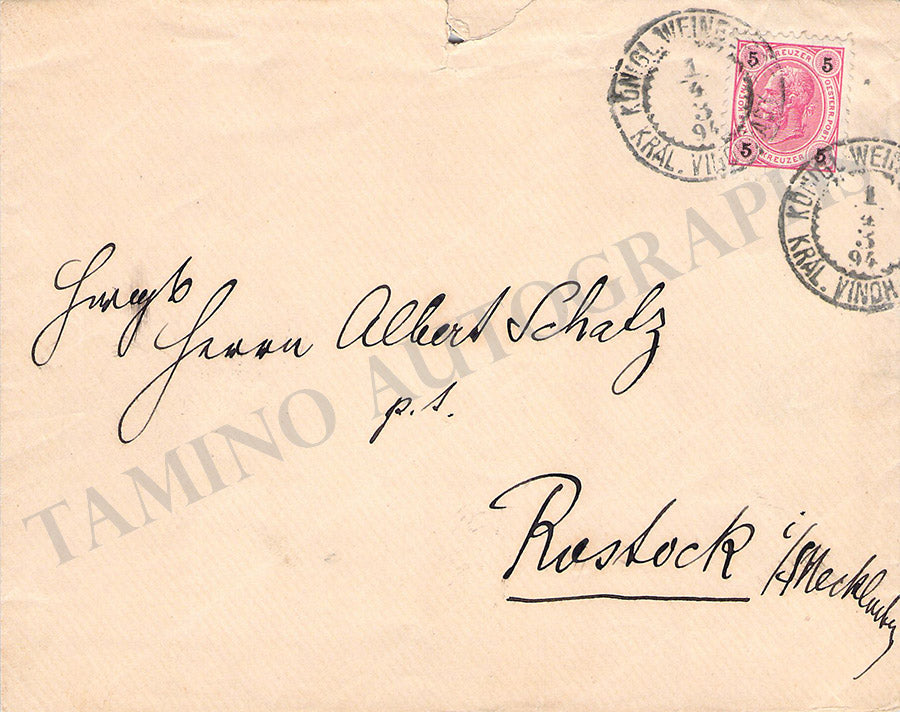 KÖNIGL. WEINB
1
4
3
94
KRÁL. VINOH
5 KREUZER 5
OESTERR. POST
5 KREUZER 5
KÖNIGL. WEINB
1
4
3
94
KRÁL. VINOH
Herrn Albert Schatz
p. t.
Rostock i/Mecklenburg
TAMINO AUTOGRAPHS